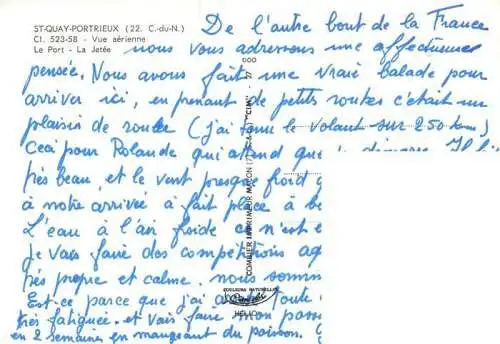 ST-QUAY-PORTRIEUX (22. C.-du-N.)
CI. 523-58 - Vue aérienne
Le Port - La Jetée
De l'autre bout de la France
nous vous adressons une affectueuse
pensée. Nous avons fait une vraie balade pour
arriver ici, en prenant de petites routes c'était un
plaisir de rouler (j'ai tenu le volant sur 250 km)
Ceci pour Rolande qui attend que
très beau, et le vent presque froid
à notre arrivée a fait place à
L'eau à l'air froide ce n'est
Je vais faire des compétitions
très propre et calme. nous
Est-ce parce que j'ai toute
très fatiguée. et vais faire
en 2 semaines en mangeant du poisson.
COMBIER IMPRIMEUR MACON
"CIM"
COULEURS NATURELLES
HELIO